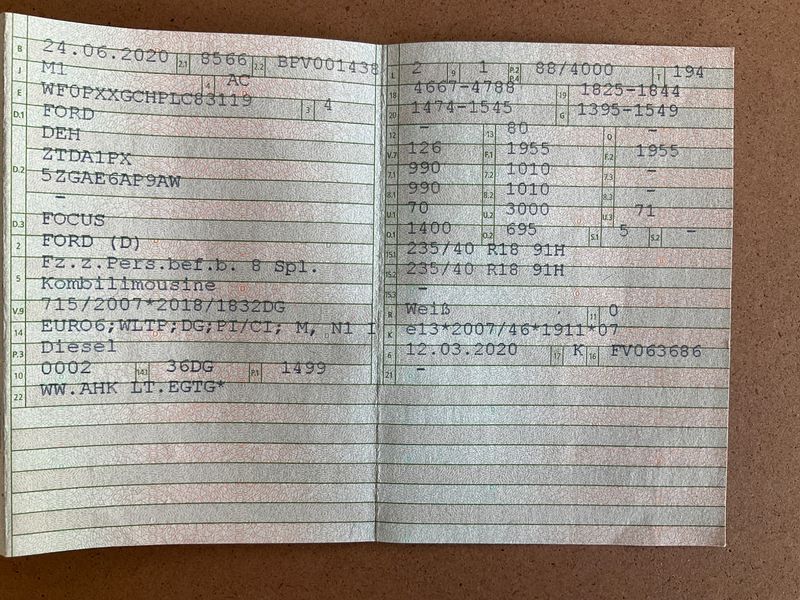 B 24.06.2020 2.1 8566 2.2 BPV001438
J M1 4 AC
E WF0PXXGCHPLC83119 3 4
D.1 FORD
DEH
ZTDA1PX
D.2 5ZGAE6AP9AW
–
D.3 FOCUS
2 FORD (D)
Fz.z.Pers.bef.b. 8 Spl.
5 Kombilimousine
V.9 715/2007*2018/1832DG
14 EURO6;WLTP;DG;PI/CI; M, N1 I
P.3 Diesel
10 0002 14.1 36DG P.1 1499
22 WW.AHK LT.EGTG*
L 2 9 1 P.2 P.4 88/4000 T 194
18 4667-4788 19 1825-1844
20 1474-1545 G 1395-1549
12 – 13 80 Q –
V.7 126 F.1 1955 F.2 1955
7.1 990 7.2 1010 7.3 –
8.1 990 8.2 1010 8.3 –
U.1 70 U.2 3000 U.3 71
O.1 1400 O.2 695 S.1 5 S.2 –
15.1 235/40 R18 91H
15.2 235/40 R18 91H
15.3 –
R Weiß 11 0
K e13*2007/46*1911*07
6 12.03.2020 17 K 16 FV063686
21 –